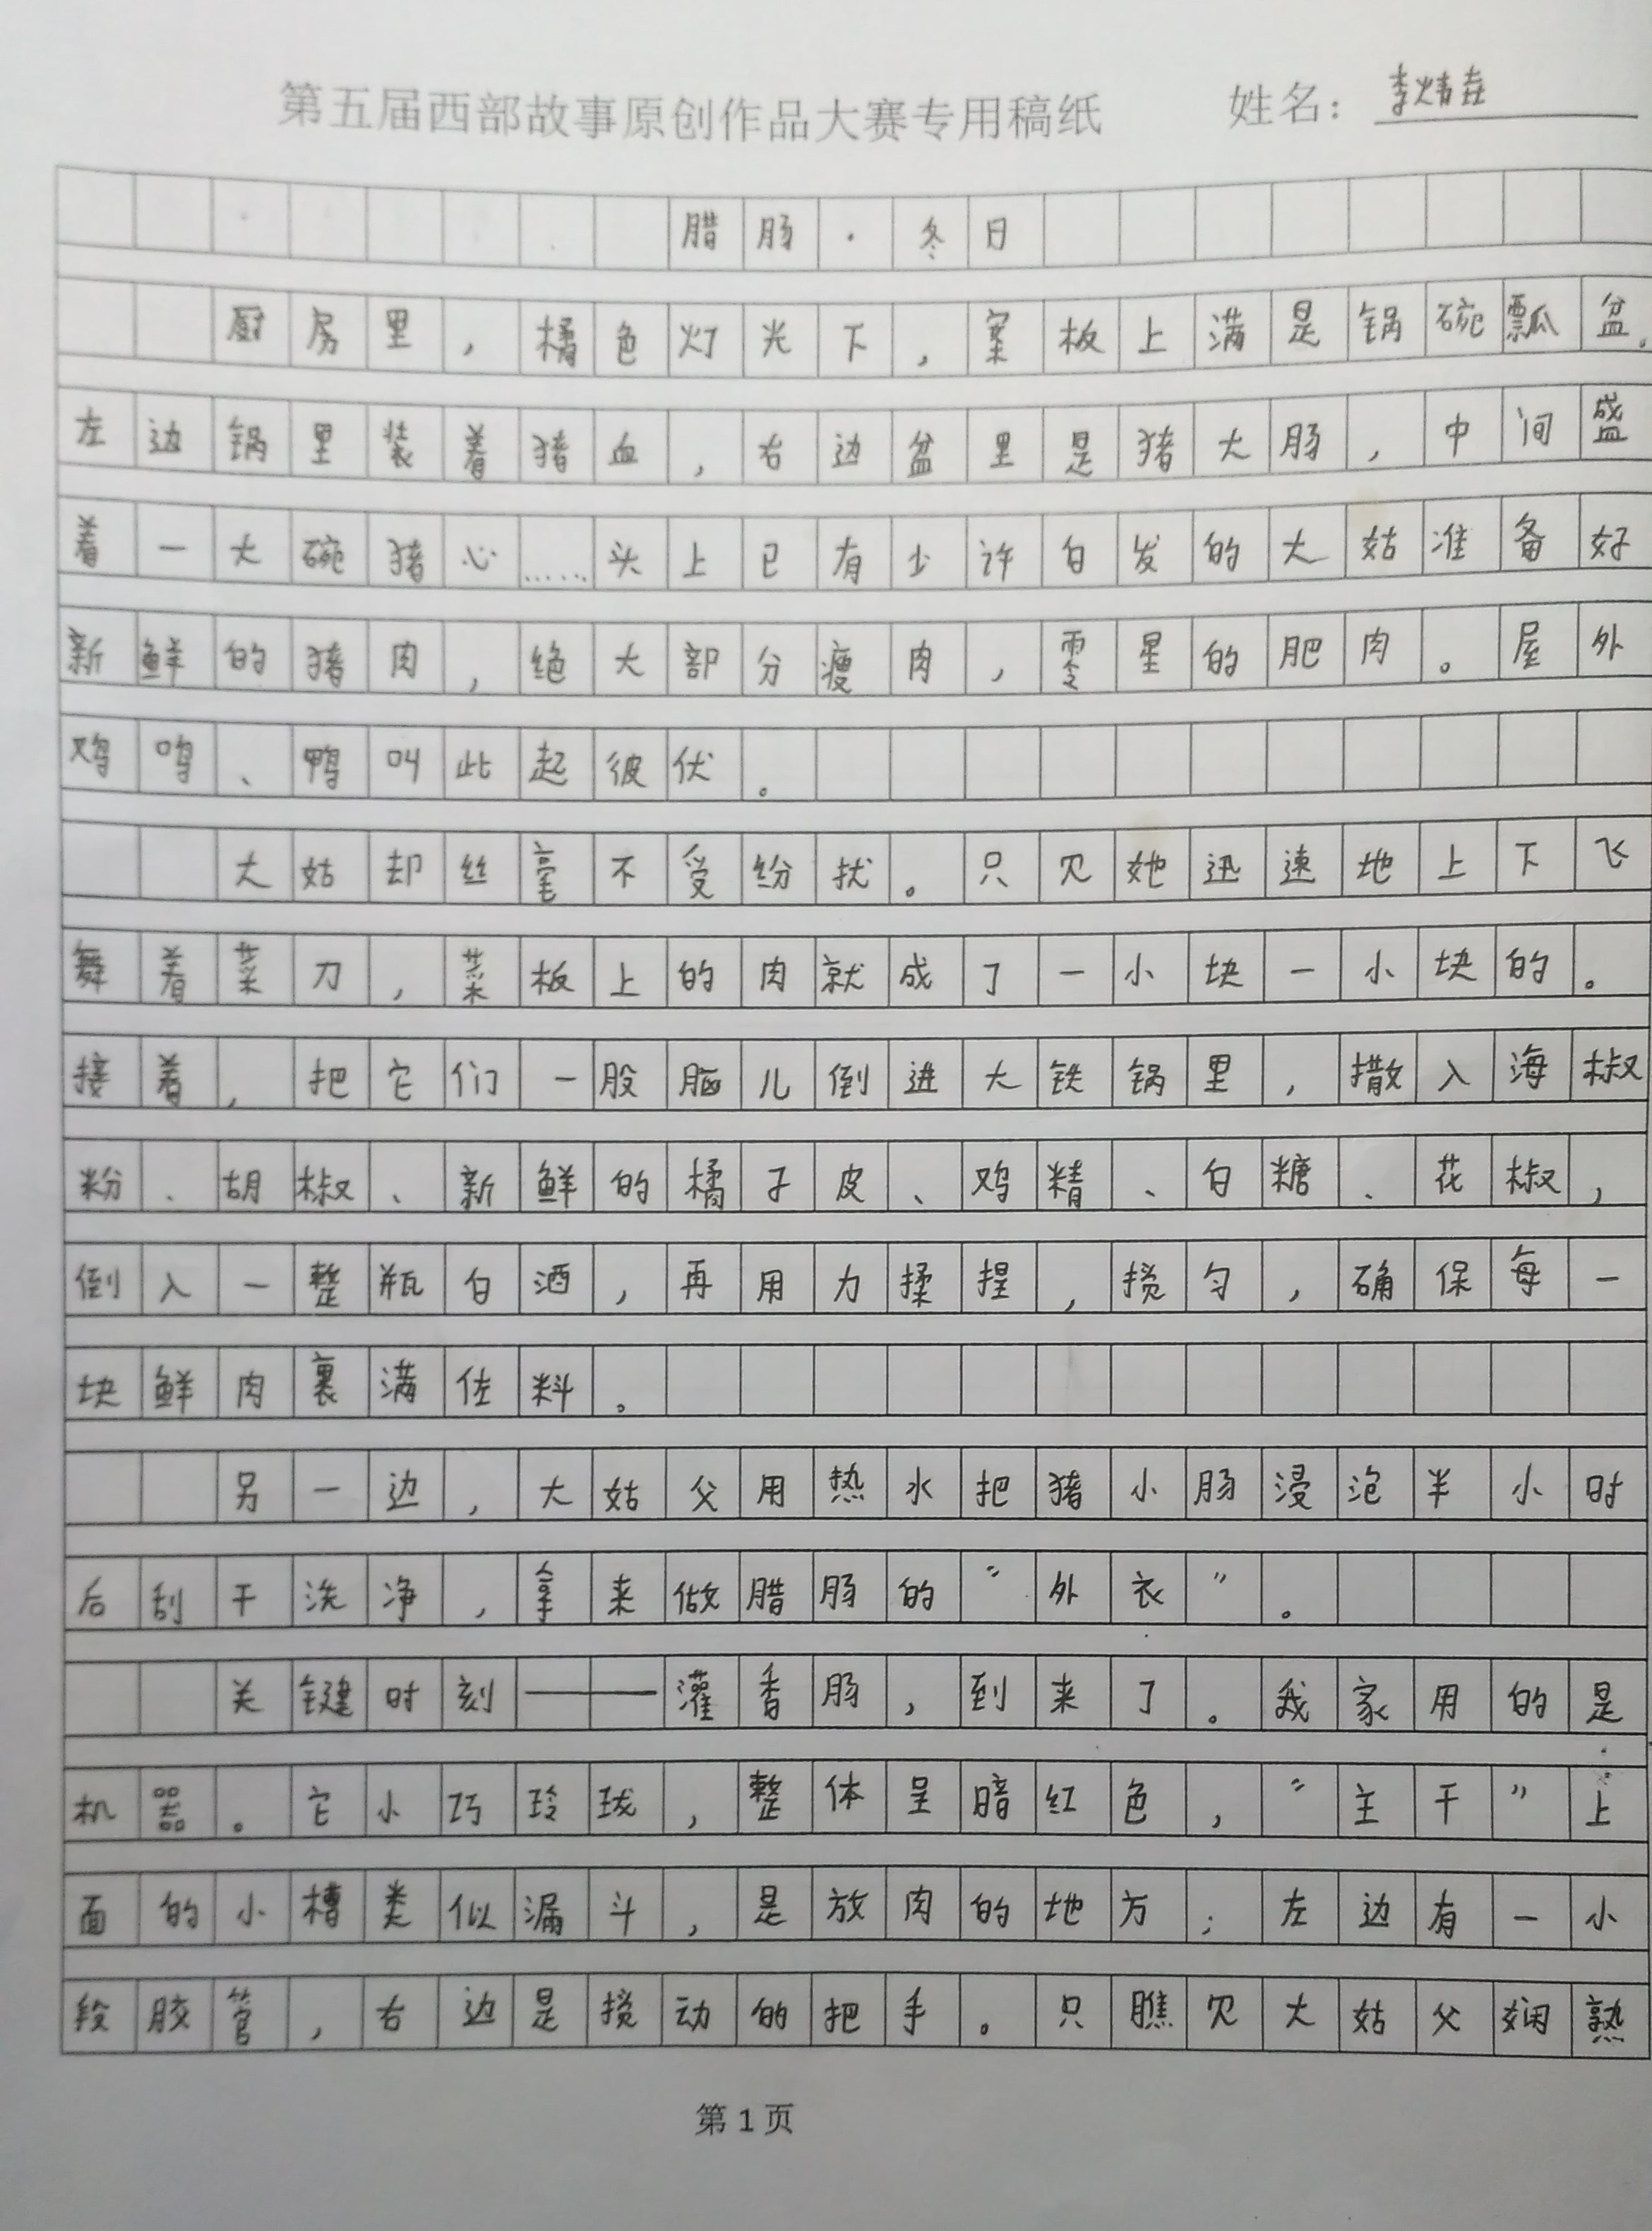 第五届西部故事原创作品大赛专用稿纸 姓名：李炜垚
腊肠·冬日
厨房里，橘色灯光下，案板上满是锅碗瓢盆。
左边锅里装着猪血，右边盆里是猪大肠，中间盛
着一大碗猪心……头上已有少许白发的大姑准备好
新鲜的猪肉，绝大部分瘦肉，零星的肥肉。屋外
鸡鸣、鸭叫此起彼伏。
大姑却丝毫不受纷扰。只见她迅速地上下飞
舞着菜刀，菜板上的肉就成了一小块一小块的。
接着，把它们一股脑儿倒进大铁锅里，撒入海椒
粉、胡椒、新鲜的橘子皮、鸡精、白糖、花椒，
倒入一整瓶白酒，再用力揉捏，搅匀，确保每一
块鲜肉裹满佐料。
另一边，大姑父用热水把猪小肠浸泡半小时
后刮干洗净，拿来做腊肠的“外衣”。
关键时刻——灌香肠，到来了。我家用的是
机器。它小巧玲珑，整体呈暗红色，“主干”上
面的小槽类似漏斗，是放肉的地方；左边有一小
段胶管，右边是搅动的把手。只瞧见大姑父娴熟
第1页